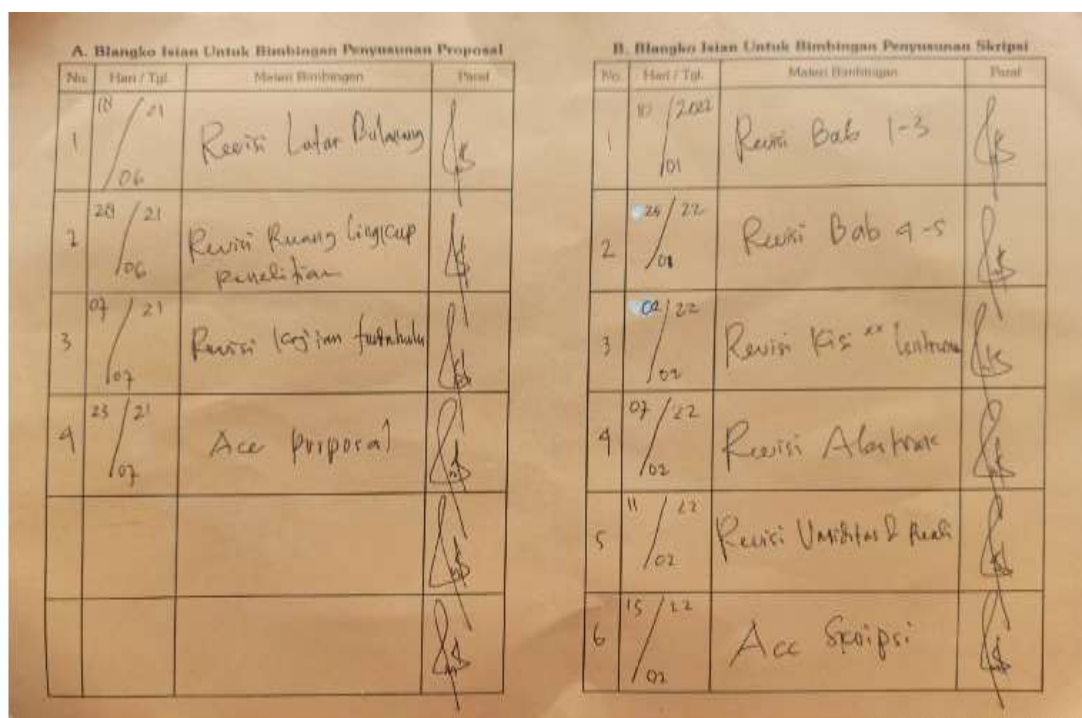 A. Blangko Isian Untuk Bimbingan Penyusunan Proposal
No. Hari / Tgl. Materi Bimbingan Paraf
1 18/06 21 Revisi Latar
2 28/06 21 Revisi Ruang Lingkup
Penelitian
3 07/07 21 Revisi Kajian
4 23/07 21 Acc
B. Blangko Isian Untuk Bimbingan Penyusunan Skripsi
No. Hari / Tgl. Materi Bimbingan Paraf
1 10/01 2022 Revisi Bab 1-3
2 22 Revisi Bab 4-5
3 02/02 22 Revisi Kisi
4 07/02 22 Revisi
5 11/02 22 Revisi
6 15/02 22 Acc Skripsi